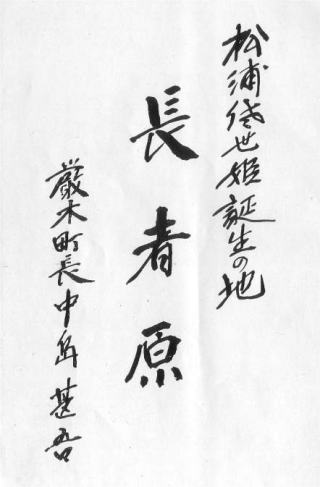 松浦佐世姫誕生の地
長者原
厳木町長中島甚吾